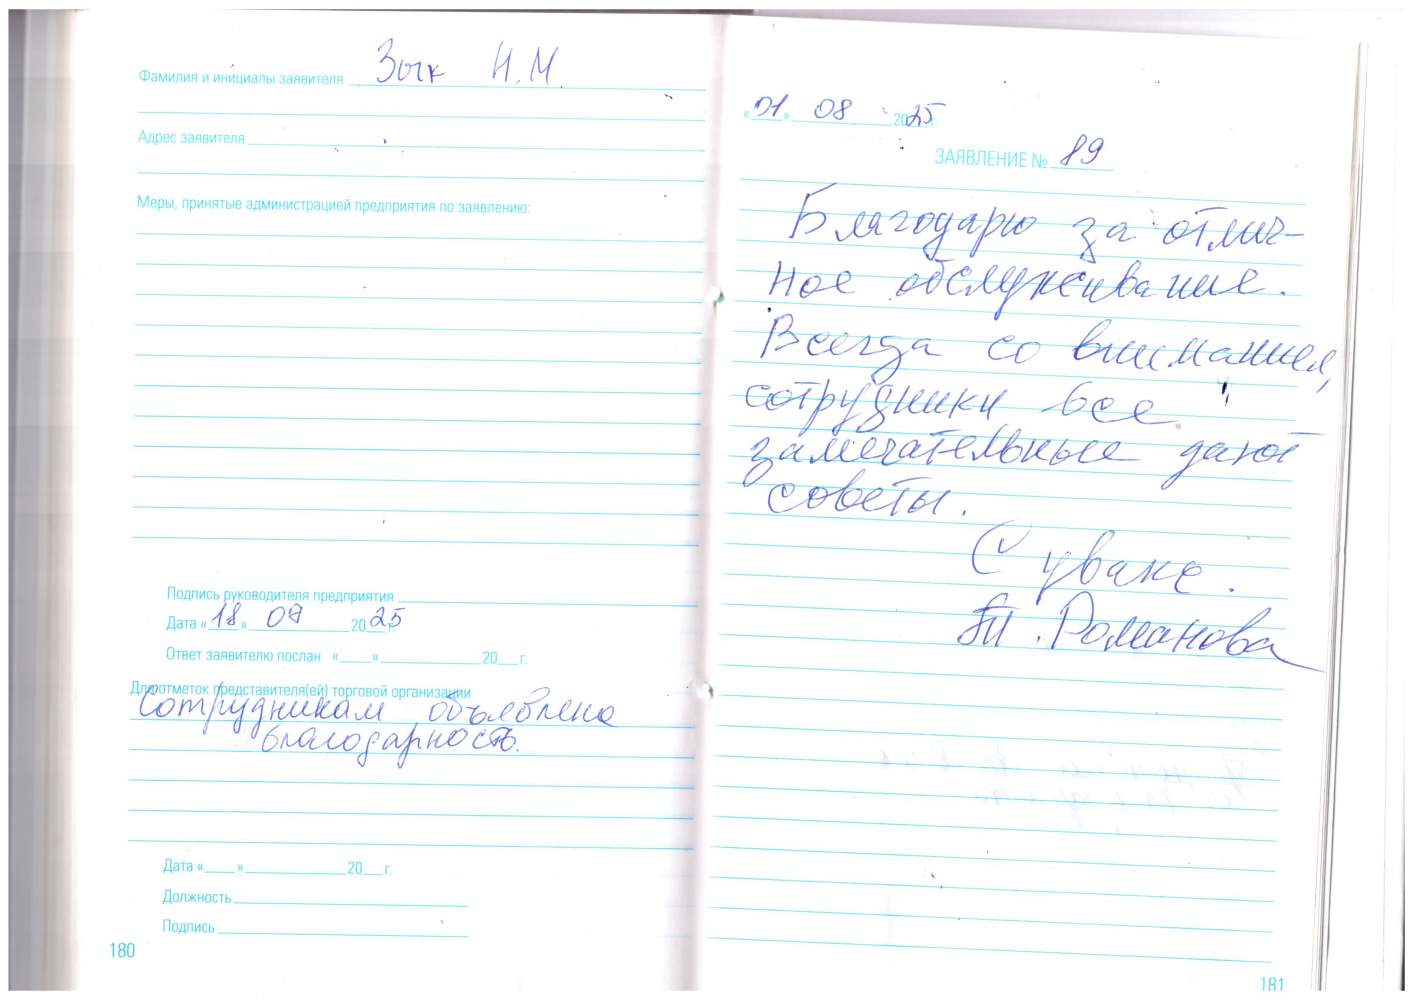 Фамилия и инициалы заявителя Зык Н.М.
Адрес заявителя
Меры, принятые администрацией предприятия по заявлению:
Подпись руководителя предприятия
Дата «18» 09 2025 г.
Ответ заявителю послан «__» 20__г.
Для отметок представителя(ей) торговой организации
Сотрудникам объявлена
благодарность.
Дата «__» 20__г.
Должность
Подпись
180
«01» 08 2025
ЗАЯВЛЕНИЕ № 89
Благодарю за отлич-
ное обслуживание.
Всегда со вниманием,
сотрудники все
замечательные дают
советы.
С уваже.
Т. Романова
181